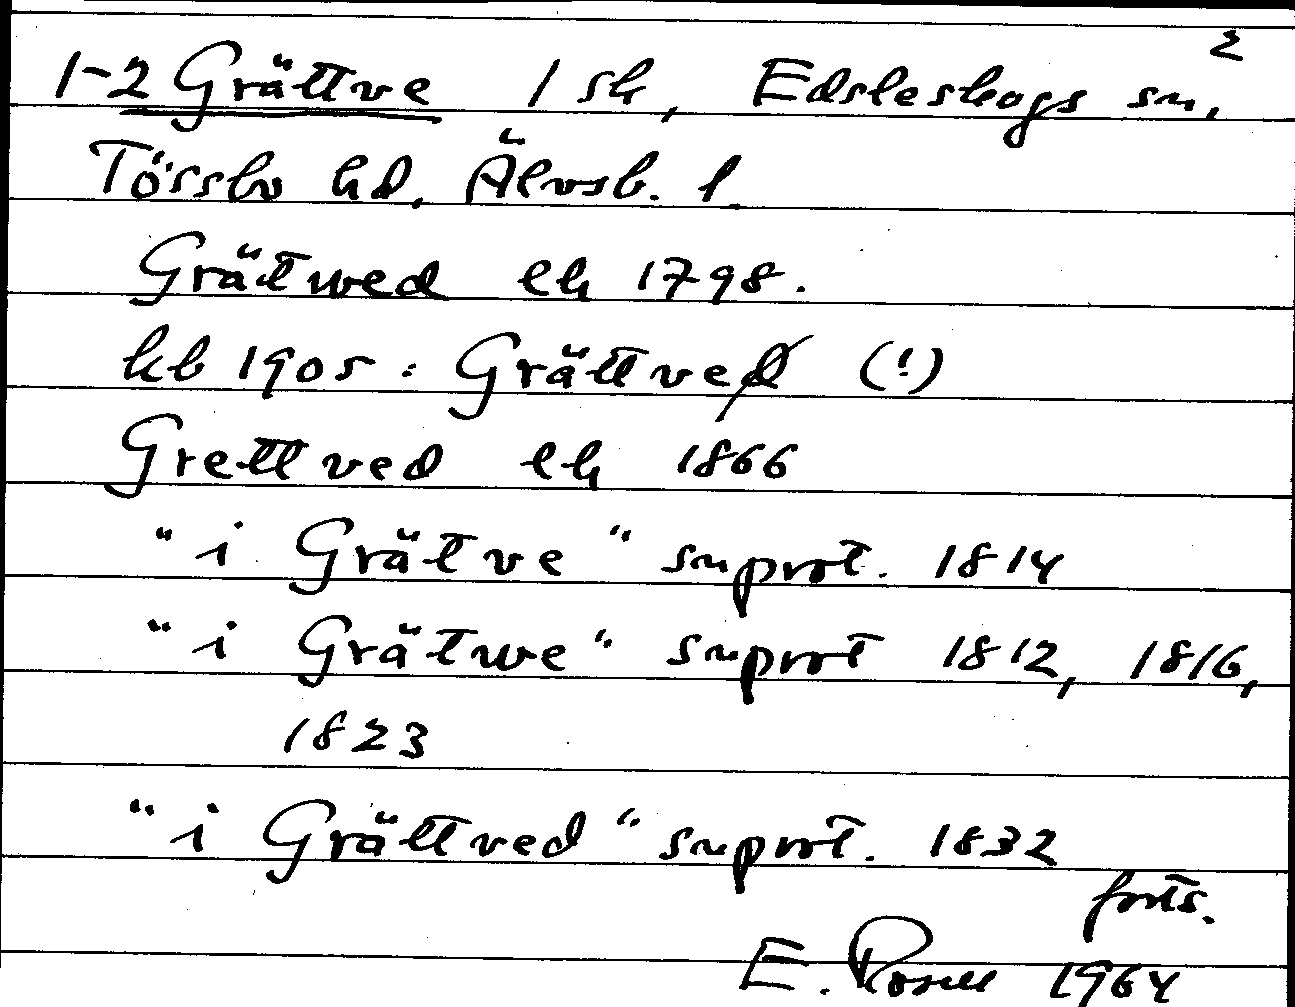 2
1-2 Grättve 1 sk, Edsleskogs sn,
Tössbo hd, Älvsb. l.
Grätwed ek 1798.
kb 1905: Grättved (!)
Grettved ek 1866
"i Grätve" snprot. 1814
"i Grätwe" snprot 1812, 1816,
1823
"i Grättved" snprot. 1832
forts.
E. Rosell 1964